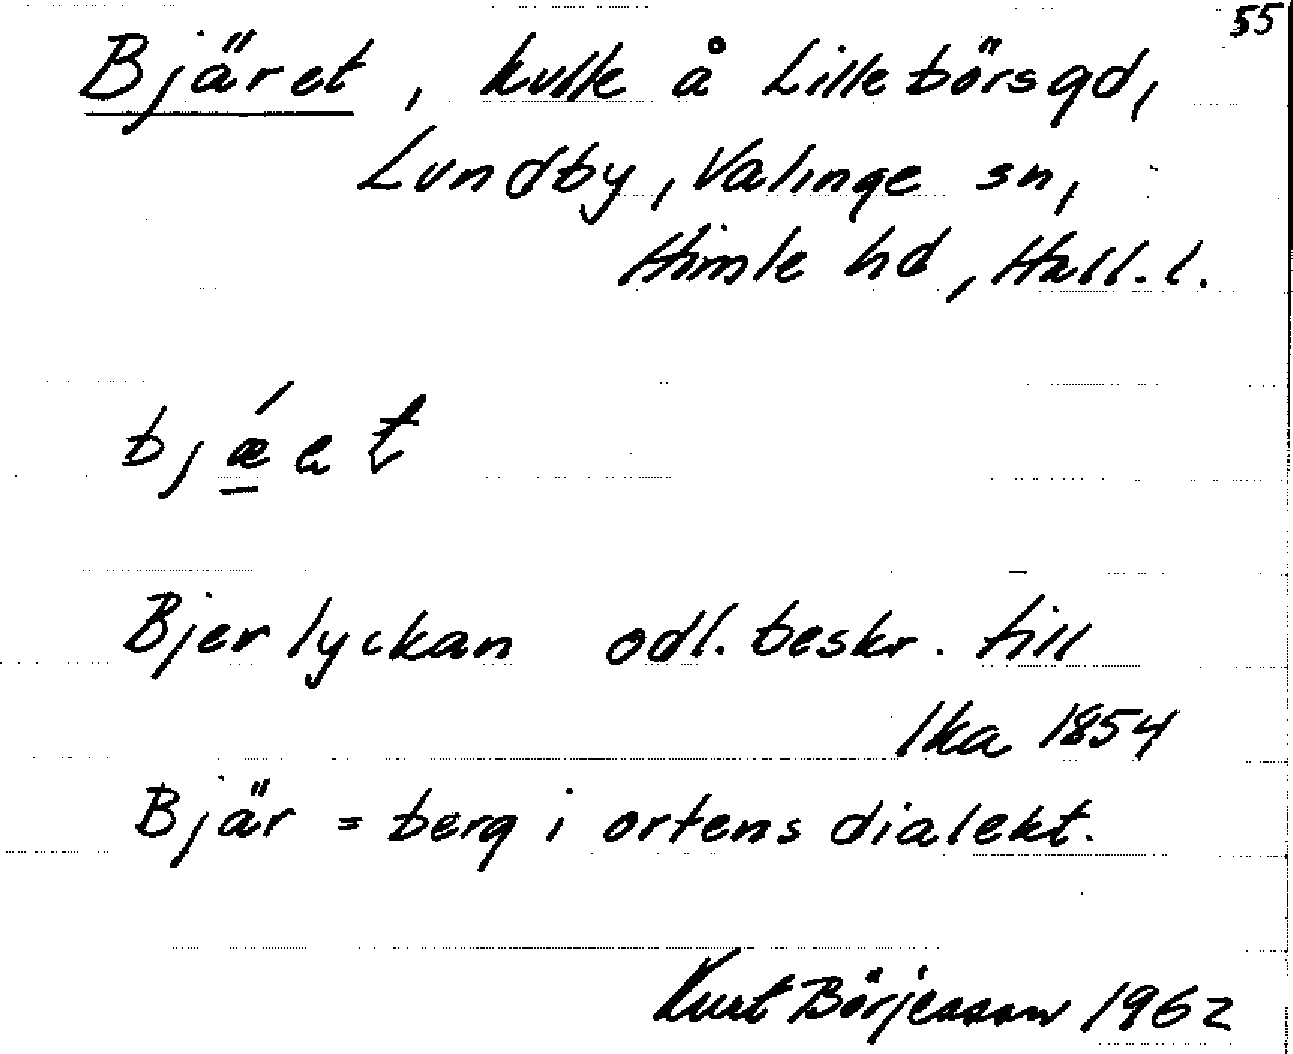 55
Bjäret, kulle å Lillebörsgd,
Lundby, Valinge sn,
Himle hd, Hall. l.
bjǽət
Bjerlyckan odl. beskr. till
lka 1854
Bjär = berg i ortens dialekt.
Kurt Börjesson 1962